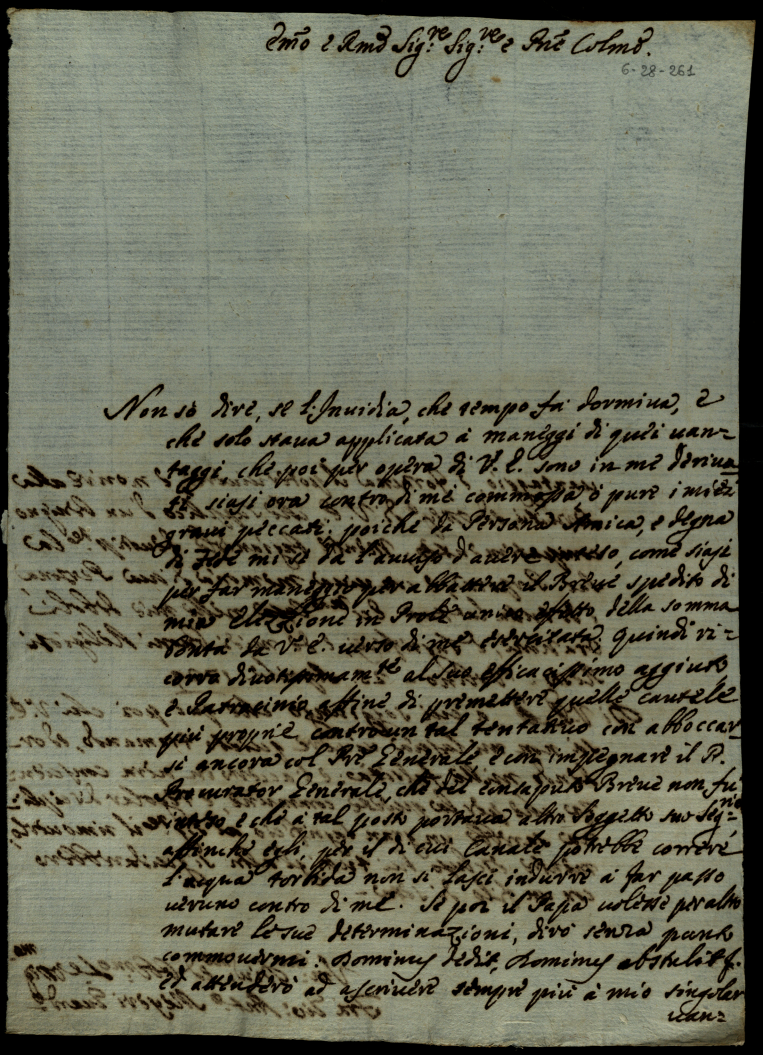 Emo e Rmo Sig.re Sig.re e Pne Colmo.
6-28-261
Non sò dire, se l'Invidia, che tempo fà dormiva, e
che solo stava applicata à maneggi di quei van=
taggi che poi per opera di V. E. sono in me deriva=
ti siasi ora contro di me commossa ò pure i miei
gravi peccati: poiche da Persona Amica, e degna
di fede mi si dà l'avviso d'avere inteso, come siasi
per far maneggio per abbattere il Breve spedito di
mia Elezzione in effetto della somma
bontà di V. E. verso di me esercitata. Quindi ri=
corro divotissimam.te al suo efficacissimo aggiuto
e Patrocinio affine di premettere quelle cautele
più proprie contro un tal tentativo con abboccar=
si ancora col Pre Generale e con impegnare il P.
Procurator Generale, che del Breve non fù
inteso e che à tal posto portava altro soggetto suo
affinche egli, per il di cui Canale potrebbe correre
l'acqua torbida non si lasci indurre à far passo
veruno contro di me. Se poi il Papa volesse per altro
mutare le sue determinazioni, dirò senza punto
commovermi: Dominus dedit, Dominus abstulit &.
ed attenderò ad ascrivere sempre più à mio singolar
van=